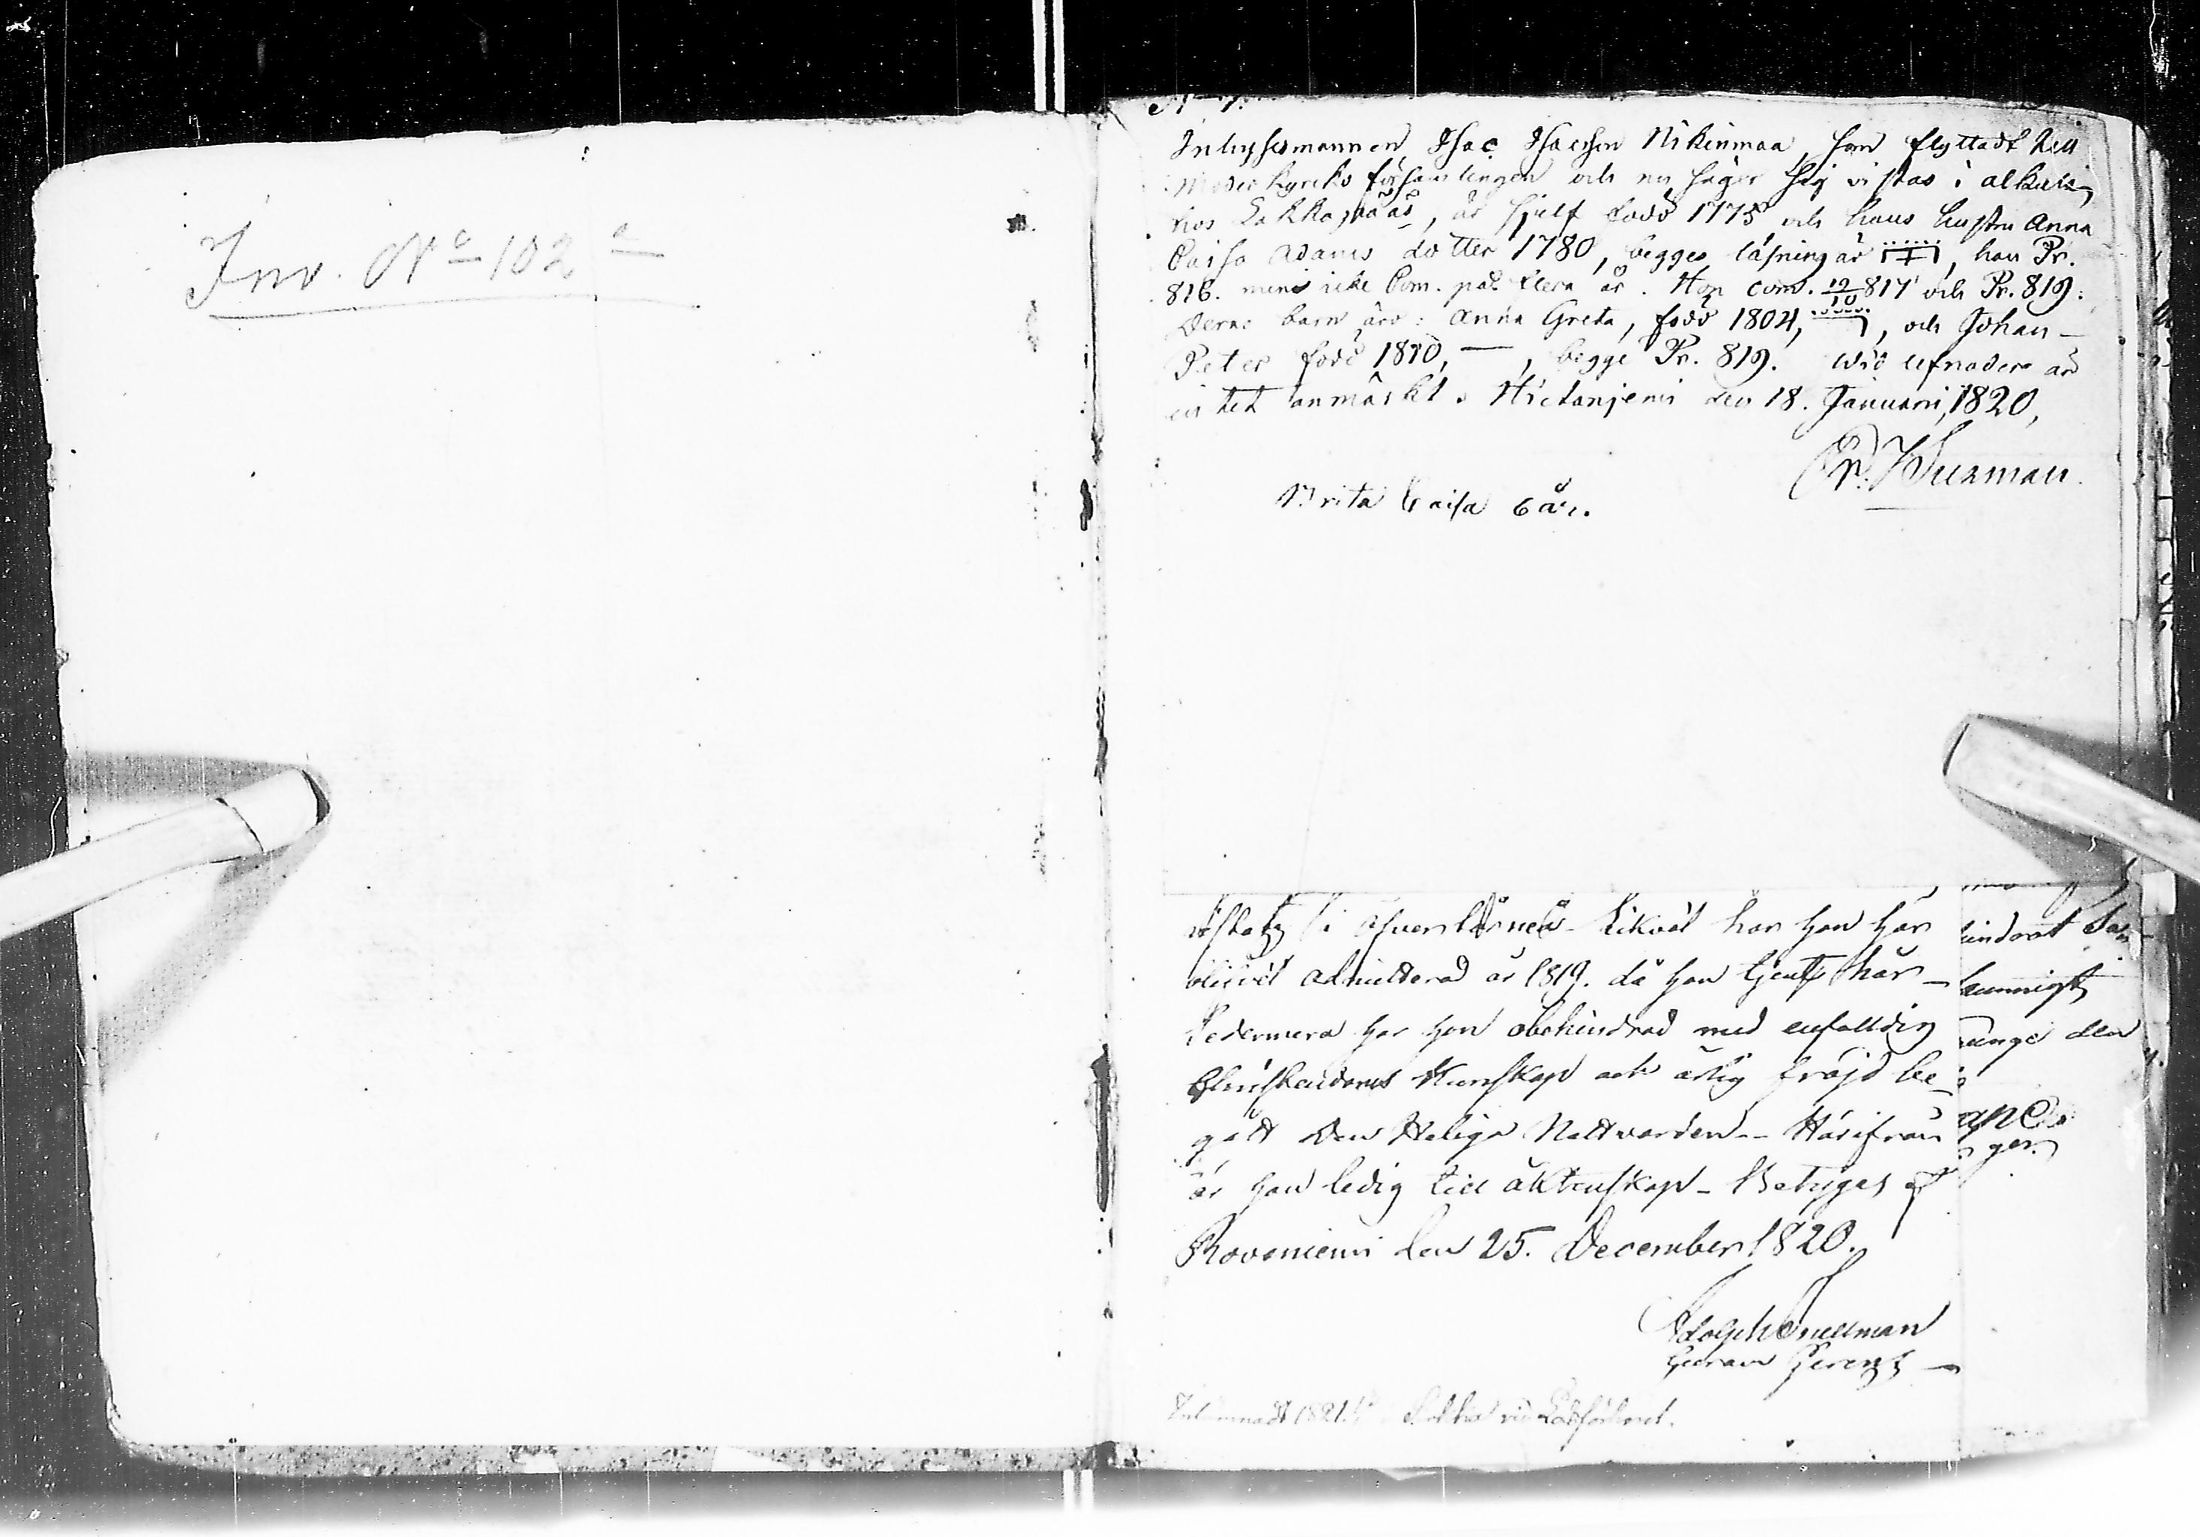 Inv. No 102
No 7.
Inhysesmannen Isac Isacsson Nikinmaa, som flyttadt till
Moderkyrko församlingen och nu säger sig vistas i alkula,
hos Lakkapää, är sjelf född 1775 och hans hustru Anna
Caisa Adams dotter 1780, begges läsning är, han Pr.
816. men icke Com. på flera år. Hon com. 12/10 817 och Pr. 819.
Deras barn äro: Anna Greta, född 1804, och Johan
Peter född 1810, —, begge Pr. 819. Wid lefnaden är
intet anmärkt. Hietaniemi den 18. Januari, 1820,
Er. Wurman.
Brita Caisa 6 år.
i Öfvertårneå. Likväl har han här
blifvit admitterad år 1819. då han tjent här
Sedermera har han obehindrad med enfalldig
Christendoms Kunskap och ärlig fräjd be-
gått Den Heliga Nattvarden - Härifrån
är han ledig till äktenskap - Betygas af
Rovaniemi den 25. December 1820.
Adolph Snellman
hindrat
unge den
gen.